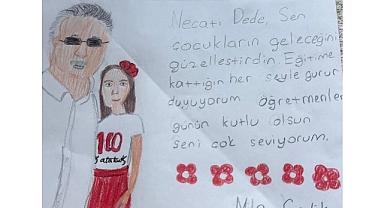 Necati Dede, Sen
çocukların geleceğini
güzelleştirdin. Eğitime
kattığın her şeyle gurur
duyuyorum öğretmenler
günün kutlu olsun
seni çok seviyorum.
100